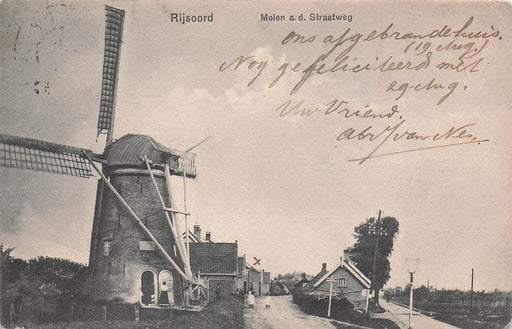 Rijsoord
Molen a. d. Straatweg
Ons afgebrande huis.
(19 Aug.)
Nog gefeliciteerd met
29 Aug.
Uw Vriend.
Abr. van Nes.